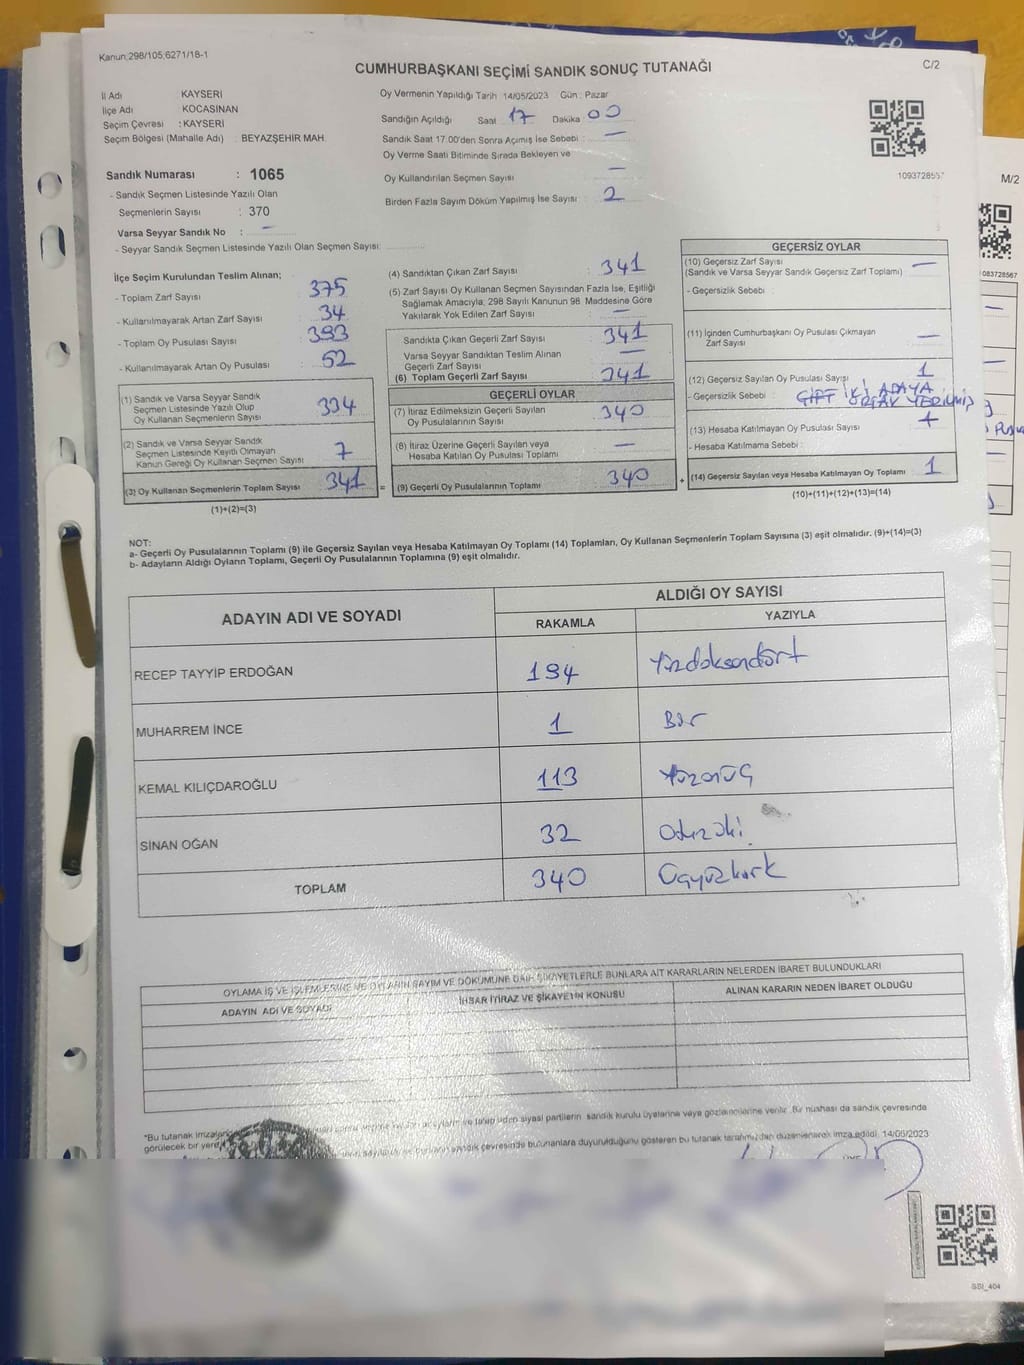 Kanun:298/105;6271/18-1
CUMHURBAŞKANI SEÇİMİ SANDIK SONUÇ TUTANAĞI
C/2
İl Adı KAYSERİ
İlçe Adı KOCASİNAN
Seçim Çevresi : KAYSERİ
Seçim Bölgesi (Mahalle Adı) : BEYAZŞEHİR MAH.
Sandık Numarası : 1065
- Sandık Seçmen Listesinde Yazılı Olan
Seçmenlerin Sayısı : 370
Varsa Seyyar Sandık No : —
- Seyyar Sandık Seçmen Listesinde Yazılı Olan Seçmen Sayısı:
Oy Vermenin Yapıldığı Tarih 14/05/2023 Gün : Pazar
Sandığın Açıldığı Saat 17 Dakika 00
Sandık Saat 17.00'den Sonra Açımış İse Sebebi : —
Oy Verme Saati Bitiminde Sırada Bekleyen ve
Oy Kullandırılan Seçmen Sayısı —
Birden Fazla Sayım Döküm Yapılmış İse Sayısı : 2
1093728567
M/2
1083728567
İlçe Seçim Kurulundan Teslim Alınan;
- Toplam Zarf Sayısı : 375
- Kullanılmayarak Artan Zarf Sayısı : 34
- Toplam Oy Pusulası Sayısı : 393
- Kullanılmayarak Artan Oy Pusulası : 52
(1) Sandık ve Varsa Seyyar Sandık
Seçmen Listesinde Yazılı Olup
Oy Kullanan Seçmenlerin Sayısı : 334
(2) Sandık ve Varsa Seyyar Sandık
Seçmen Listesinde Kayıtlı Olmayan
Kanun Gereği Oy Kullanan Seçmen Sayısı : 7
(3) Oy Kullanan Seçmenlerin Toplam Sayısı 341 =
(1)+(2)=(3)
(4) Sandıktan Çıkan Zarf Sayısı : 341
(5) Zarf Sayısı Oy Kullanan Seçmen Sayısından Fazla İse, Eşitliği
Sağlamak Amacıyla, 298 Sayılı Kanunun 98. Maddesine Göre
Yakılarak Yok Edilen Zarf Sayısı : —
Sandıkta Çıkan Geçerli Zarf Sayısı : 341
Varsa Seyyar Sandıktan Teslim Alınan
Geçerli Zarf Sayısı : —
(6) Toplam Geçerli Zarf Sayısı : 341
GEÇERLİ OYLAR
(7) İtiraz Edilmeksizin Geçerli Sayılan
Oy Pusulalarının Sayısı : 340
(8) İtiraz Üzerine Geçerli Sayılan veya
Hesaba Katılan Oy Pusulası Toplamı : —
(9) Geçerli Oy Pusulalarının Toplamı : 340 +
GEÇERSİZ OYLAR
(10) Geçersiz Zarf Sayısı : —
(Sandık ve Varsa Seyyar Sandık Geçersiz Zarf Toplamı)
- Geçersizlik Sebebi :
(11) İçinden Cumhurbaşkanı Oy Pusulası Çıkmayan
Zarf Sayısı : —
(12) Geçersiz Sayılan Oy Pusulası Sayısı : 1
- Geçersizlik Sebebi : ÇİFT İKİ ADAYA
VERİLMİŞ
(13) Hesaba Katılmayan Oy Pusulası Sayısı
- Hesaba Katılmama Sebebi :
(14) Geçersiz Sayılan veya Hesaba Katılmayan Oy Toplamı : 1
(10)+(11)+(12)+(13)=(14)
NOT:
a- Geçerli Oy Pusulalarının Toplamı (9) ile Geçersiz Sayılan veya Hesaba Katılmayan Oy Toplamı (14) Toplamları, Oy Kullanan Seçmenlerin Toplam Sayısına (3) eşit olmalıdır. (9)+(14)=(3)
b- Adayların Aldığı Oyların Toplamı, Geçerli Oy Pusulalarının Toplamına (9) eşit olmalıdır.
ADAYIN ADI VE SOYADI ALDIĞI OY SAYISI
RAKAMLA YAZIYLA
RECEP TAYYİP ERDOĞAN 194 Yüzdoksandört
MUHARREM İNCE 1 Bir
KEMAL KILIÇDAROĞLU 113 Yüzonüç
SİNAN OĞAN 32 Otuziki
TOPLAM 340 Üçyüzkırk
OYLAMA İŞ VE İŞLEMLERİNE VE OYLARIN SAYIM VE DÖKÜMÜNE DAİR ŞİKAYETLERLE BUNLARA AİT KARARLARIN NELERDEN İBARET BULUNDUKLARI
ADAYIN ADI VE SOYADI İHBAR İTİRAZ VE ŞİKAYETİN KONUSU ALINAN KARARIN NEDEN İBARET OLDUĞU
*Bu tutanak siyasi partilerin sandık kurulu üyelerine veya gözlemcilerine verilir. Bir nüshası da sandık çevresinde
görülecek bir yere sandık çevresinde bulunanlara duyurulduğunu gösteren bu tutanak tarafımızdan düzenlenerek imza edildi. 14/05/2023
SSI_404